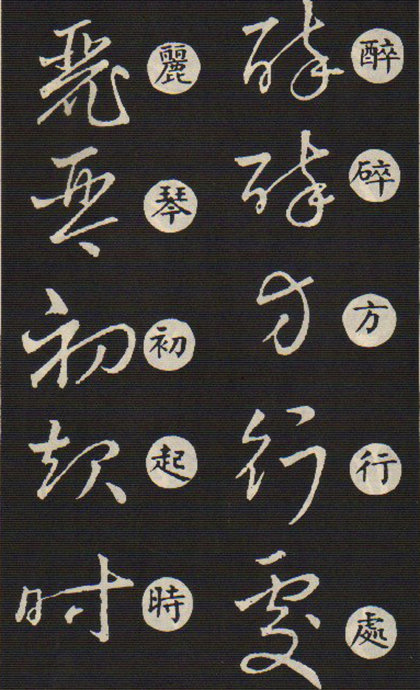 醉碎方行處
麗琴初起時